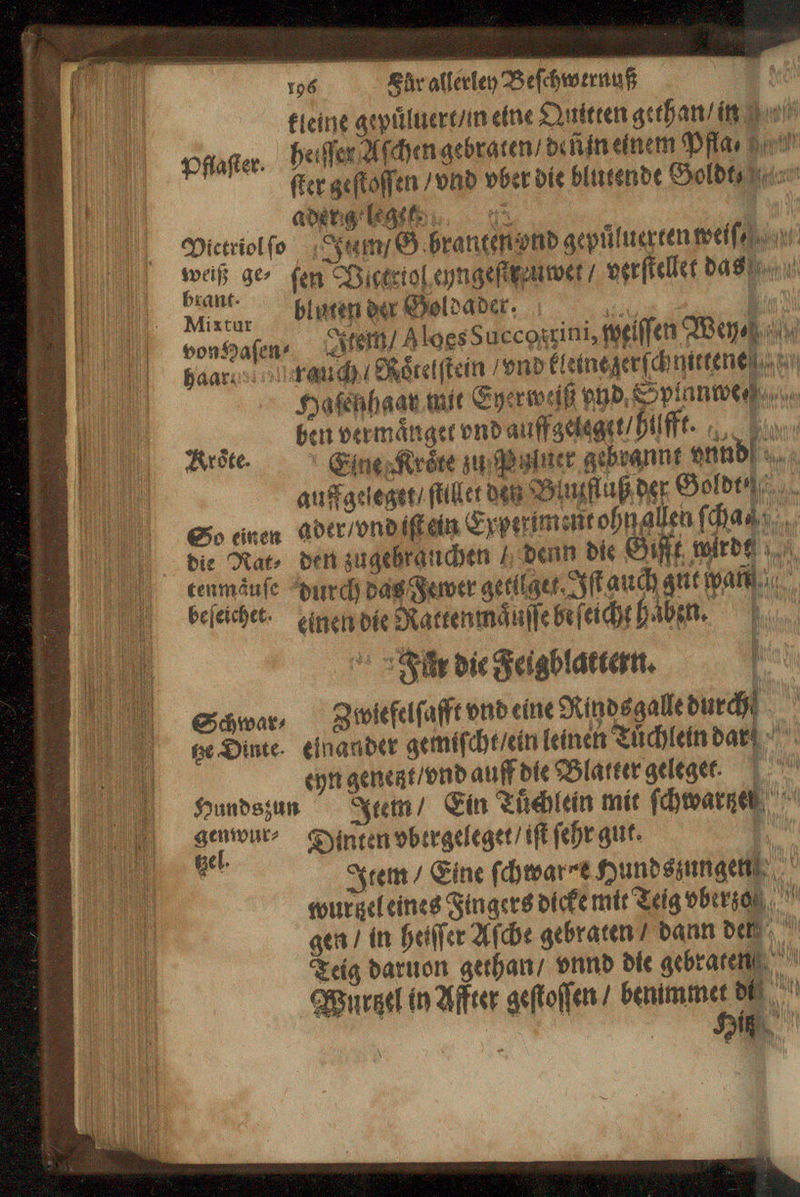 196 Für allerley Beschwernuß
kleine gepuͤluert/in eine Quitten gethan/in
Pflaster. heisser Aschen gebraten/ deñ in einem Pfla⸗
ster gestossen / vnd vber die blutende Goldt⸗
ader geleget.
Victriol so Item/ G branten vnd gepuͤluerten weis⸗
weiß ge⸗ sen Victriol eyngestreuwet / verstellet das
brant. bluten der Goldader.
Mixtur
von Hasen⸗ Item/ Aloes Succotrini, weissen Wey⸗
haar. rauch / Roͤtelstein / vnd kleine zerschnittene
Hasenhaar mit Eyerweiß vnd Spinnwe⸗
ben vermaͤnget vnd auffgeleget/ hilfft.
Kroͤte. Eine Kroͤte zu Puluer gebrannt vnnd
auffgeleget/ stillet den Blutfluß der Goldt⸗
So einen ader/ vnd ist ein Experiment ohn allen scha⸗
die Rat⸗ den zugebrauchen / denn die Gifft wirdt
tenmaͤuse durch das Fewer getilget. Ist auch gut wañ
beseichet. einen die Rattenmaͤusse beseicht haben.
Für die Feigblattern.
Schwar⸗ Zwiefelsafft vnd eine Rindsgalle durch
tze Dinte. einander gemischt/ein leinen Tuͤchlein dar
eyn genetzt/vnd auff die Blatter geleget.
Hundszun Item / Ein Tuͤchlein mit schwartzer
genwur⸗ Dinten vbergeleget/ ist sehr gut.
tzel. Item / Eine schwartze Hundszungen
wurtzel eines Fingers dicke mit Teig vberzo
gen / in heisser Asche gebraten / dann den
Teig daruon gethan/ vnnd die gebraten
Wurtzel in Affter gestossen / benimmet di
Hitz